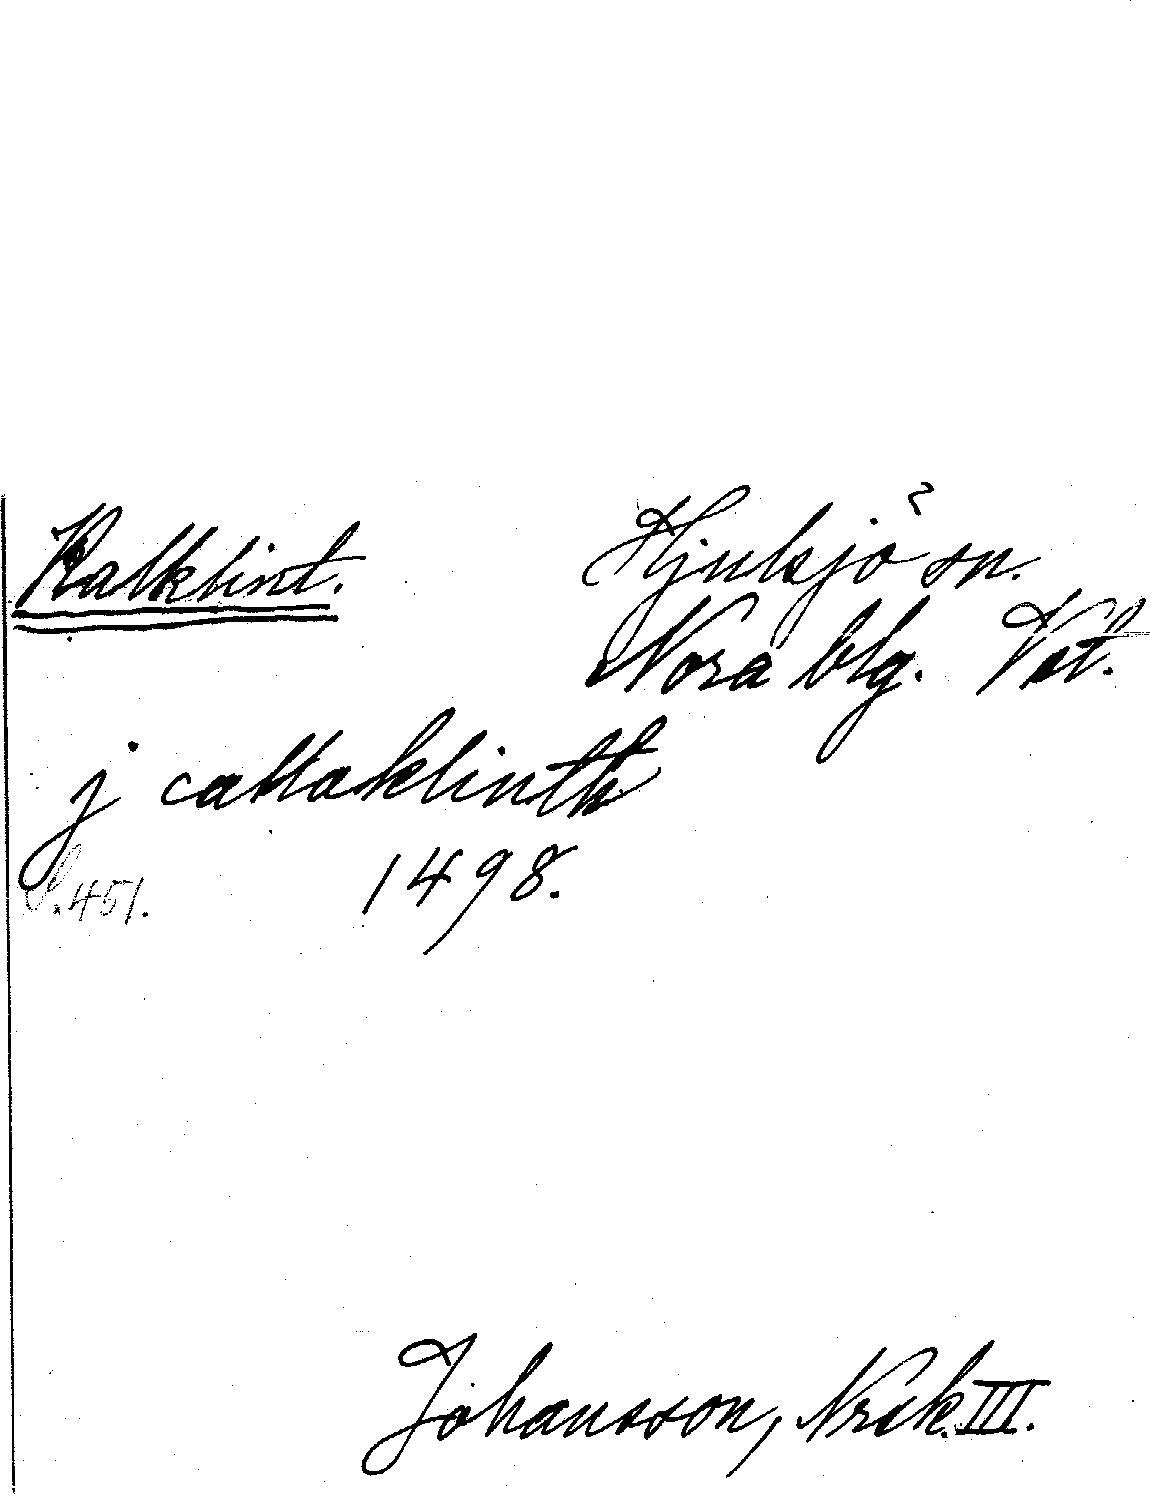 Kalklint.
Hjulsjö sn.
Nora blg. Vst.
j cattaklinth
S. 451.
1498.
Johansson, Nrsk. III.